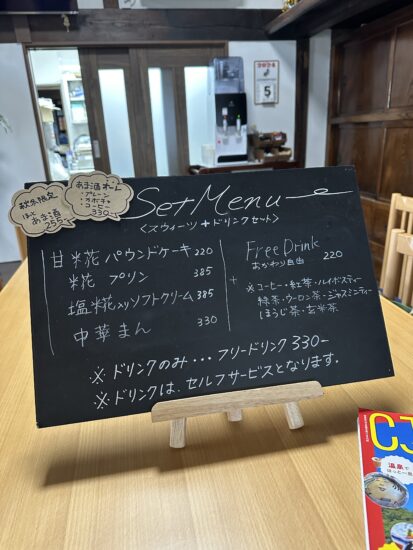 2024
5
秋冬限定
あま酒
255-
あま酒オーレ
・プレーン
・コーヒー
330-
Set Menu
<スウィーツ + ドリンクセット>
甘糀パウンドケーキ 220
糀 プリン 385
塩糀入りソフトクリーム 385
中華まん 330
+
Free Drink
おかわり自由 220
※コーヒー・紅茶・ルイボスティー
緑茶・ウーロン茶・ジャスミンティー
ほうじ茶・玄米茶
※ドリンクのみ・・・フリードリンク330-
※ドリンクは、セルフサービスとなります。
CJ
温泉で